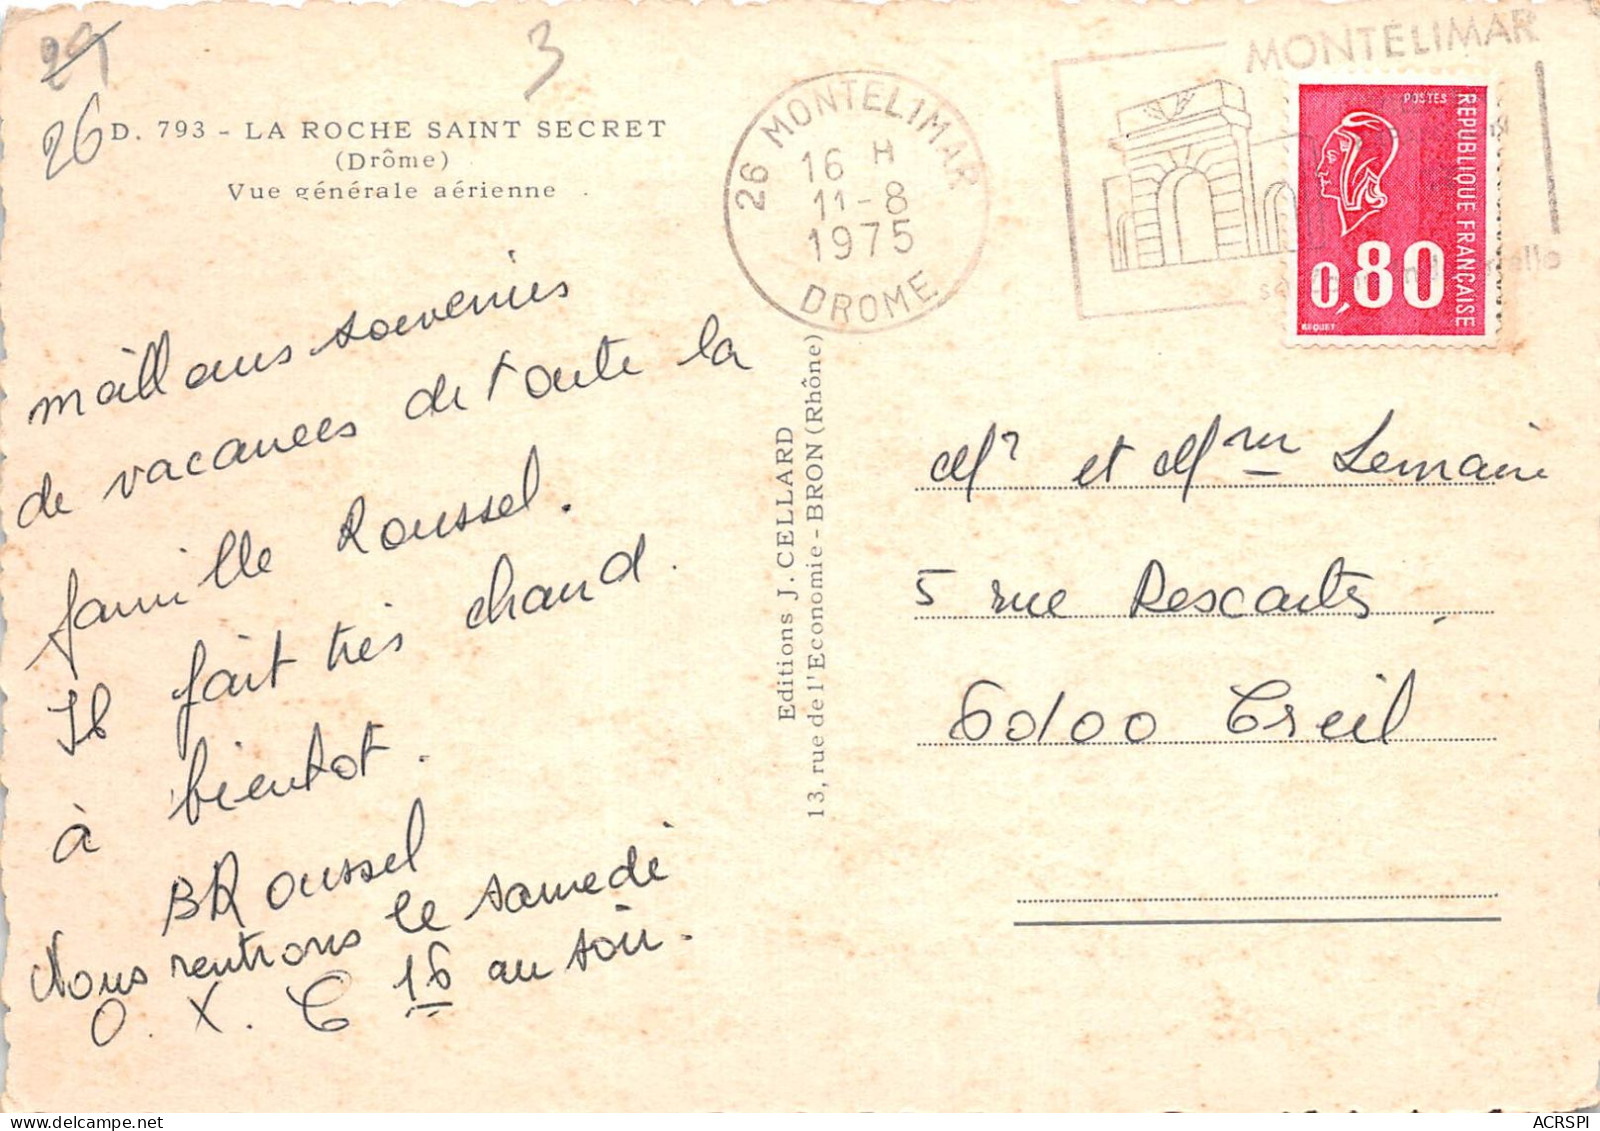 29
3
26
D. 793 - LA ROCHE SAINT SECRET
(Drôme)
Vue générale aérienne
26 MONTELIMAR
16 H
11-8
1975
DROME
MONTELIMAR
POSTES
REPUBLIQUE FRANÇAISE
0,80
BEQUET
meilleurs souvenirs
de vacances de toute la
famille Roussel.
Il fait très chaud.
à bientot.
BRoussel
Nous rentrons le samedi
16 au soir.
O. X. C
Editions J. CELLARD
13, rue de l'Economie - BRON (Rhône)
Mr et Mme Lemaire
5 rue Descartes,
60100 Creil
ACRSPI